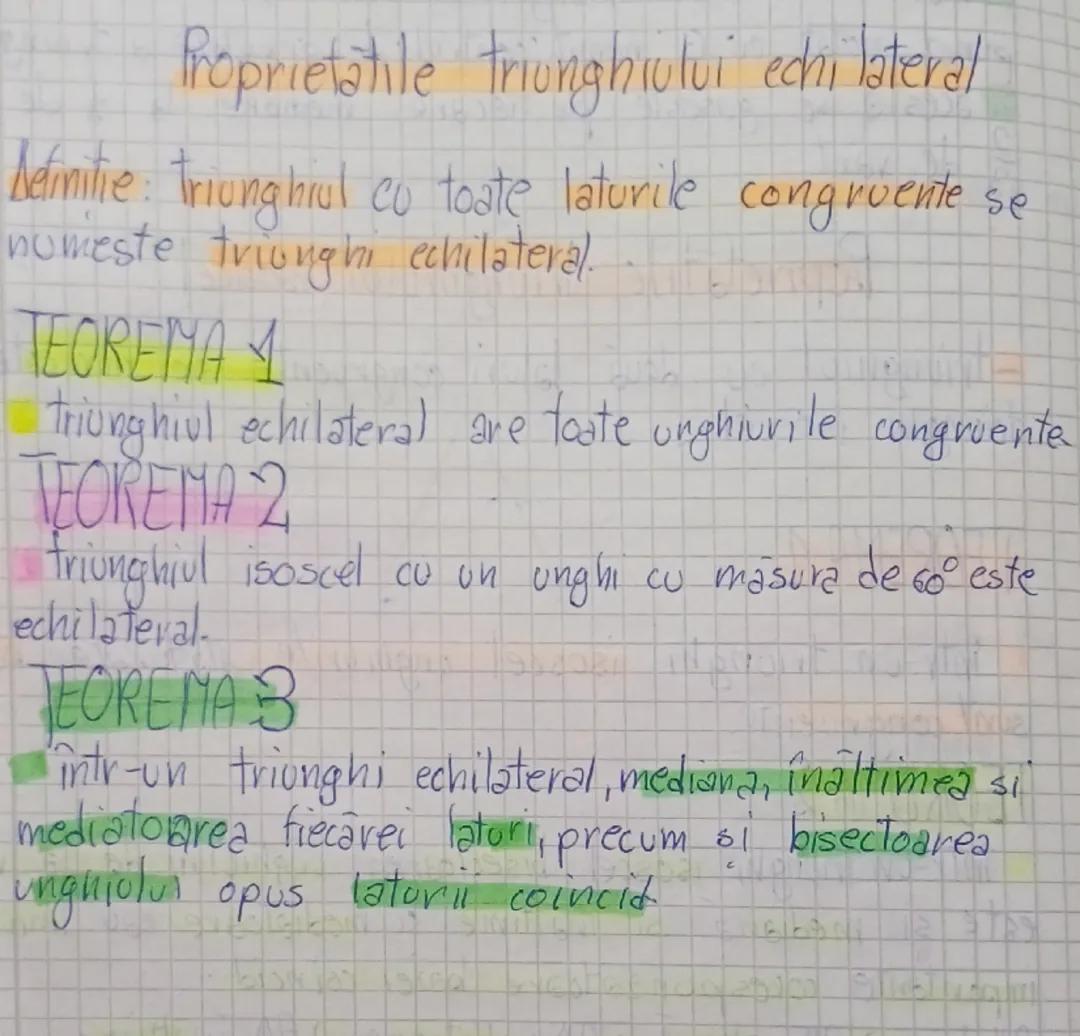 Proprietățile triunghiului echilateral
Definitie: triunghiul cu toate laturile congruente se
numeste triunghi echilateral.
TEOREMA 1
triunghiul echilateral are toate unghiurile congruente
TEOREMA 2
triunghiul isoscel cu un unghi cu măsura de 60° este
echilateral.
TEOREMA 3
într-un triunghi echilateral, mediana, înăltimea si
mediatoarea fiecărei laturi, precum și bisectoarea
unghiului opus laturii coincid